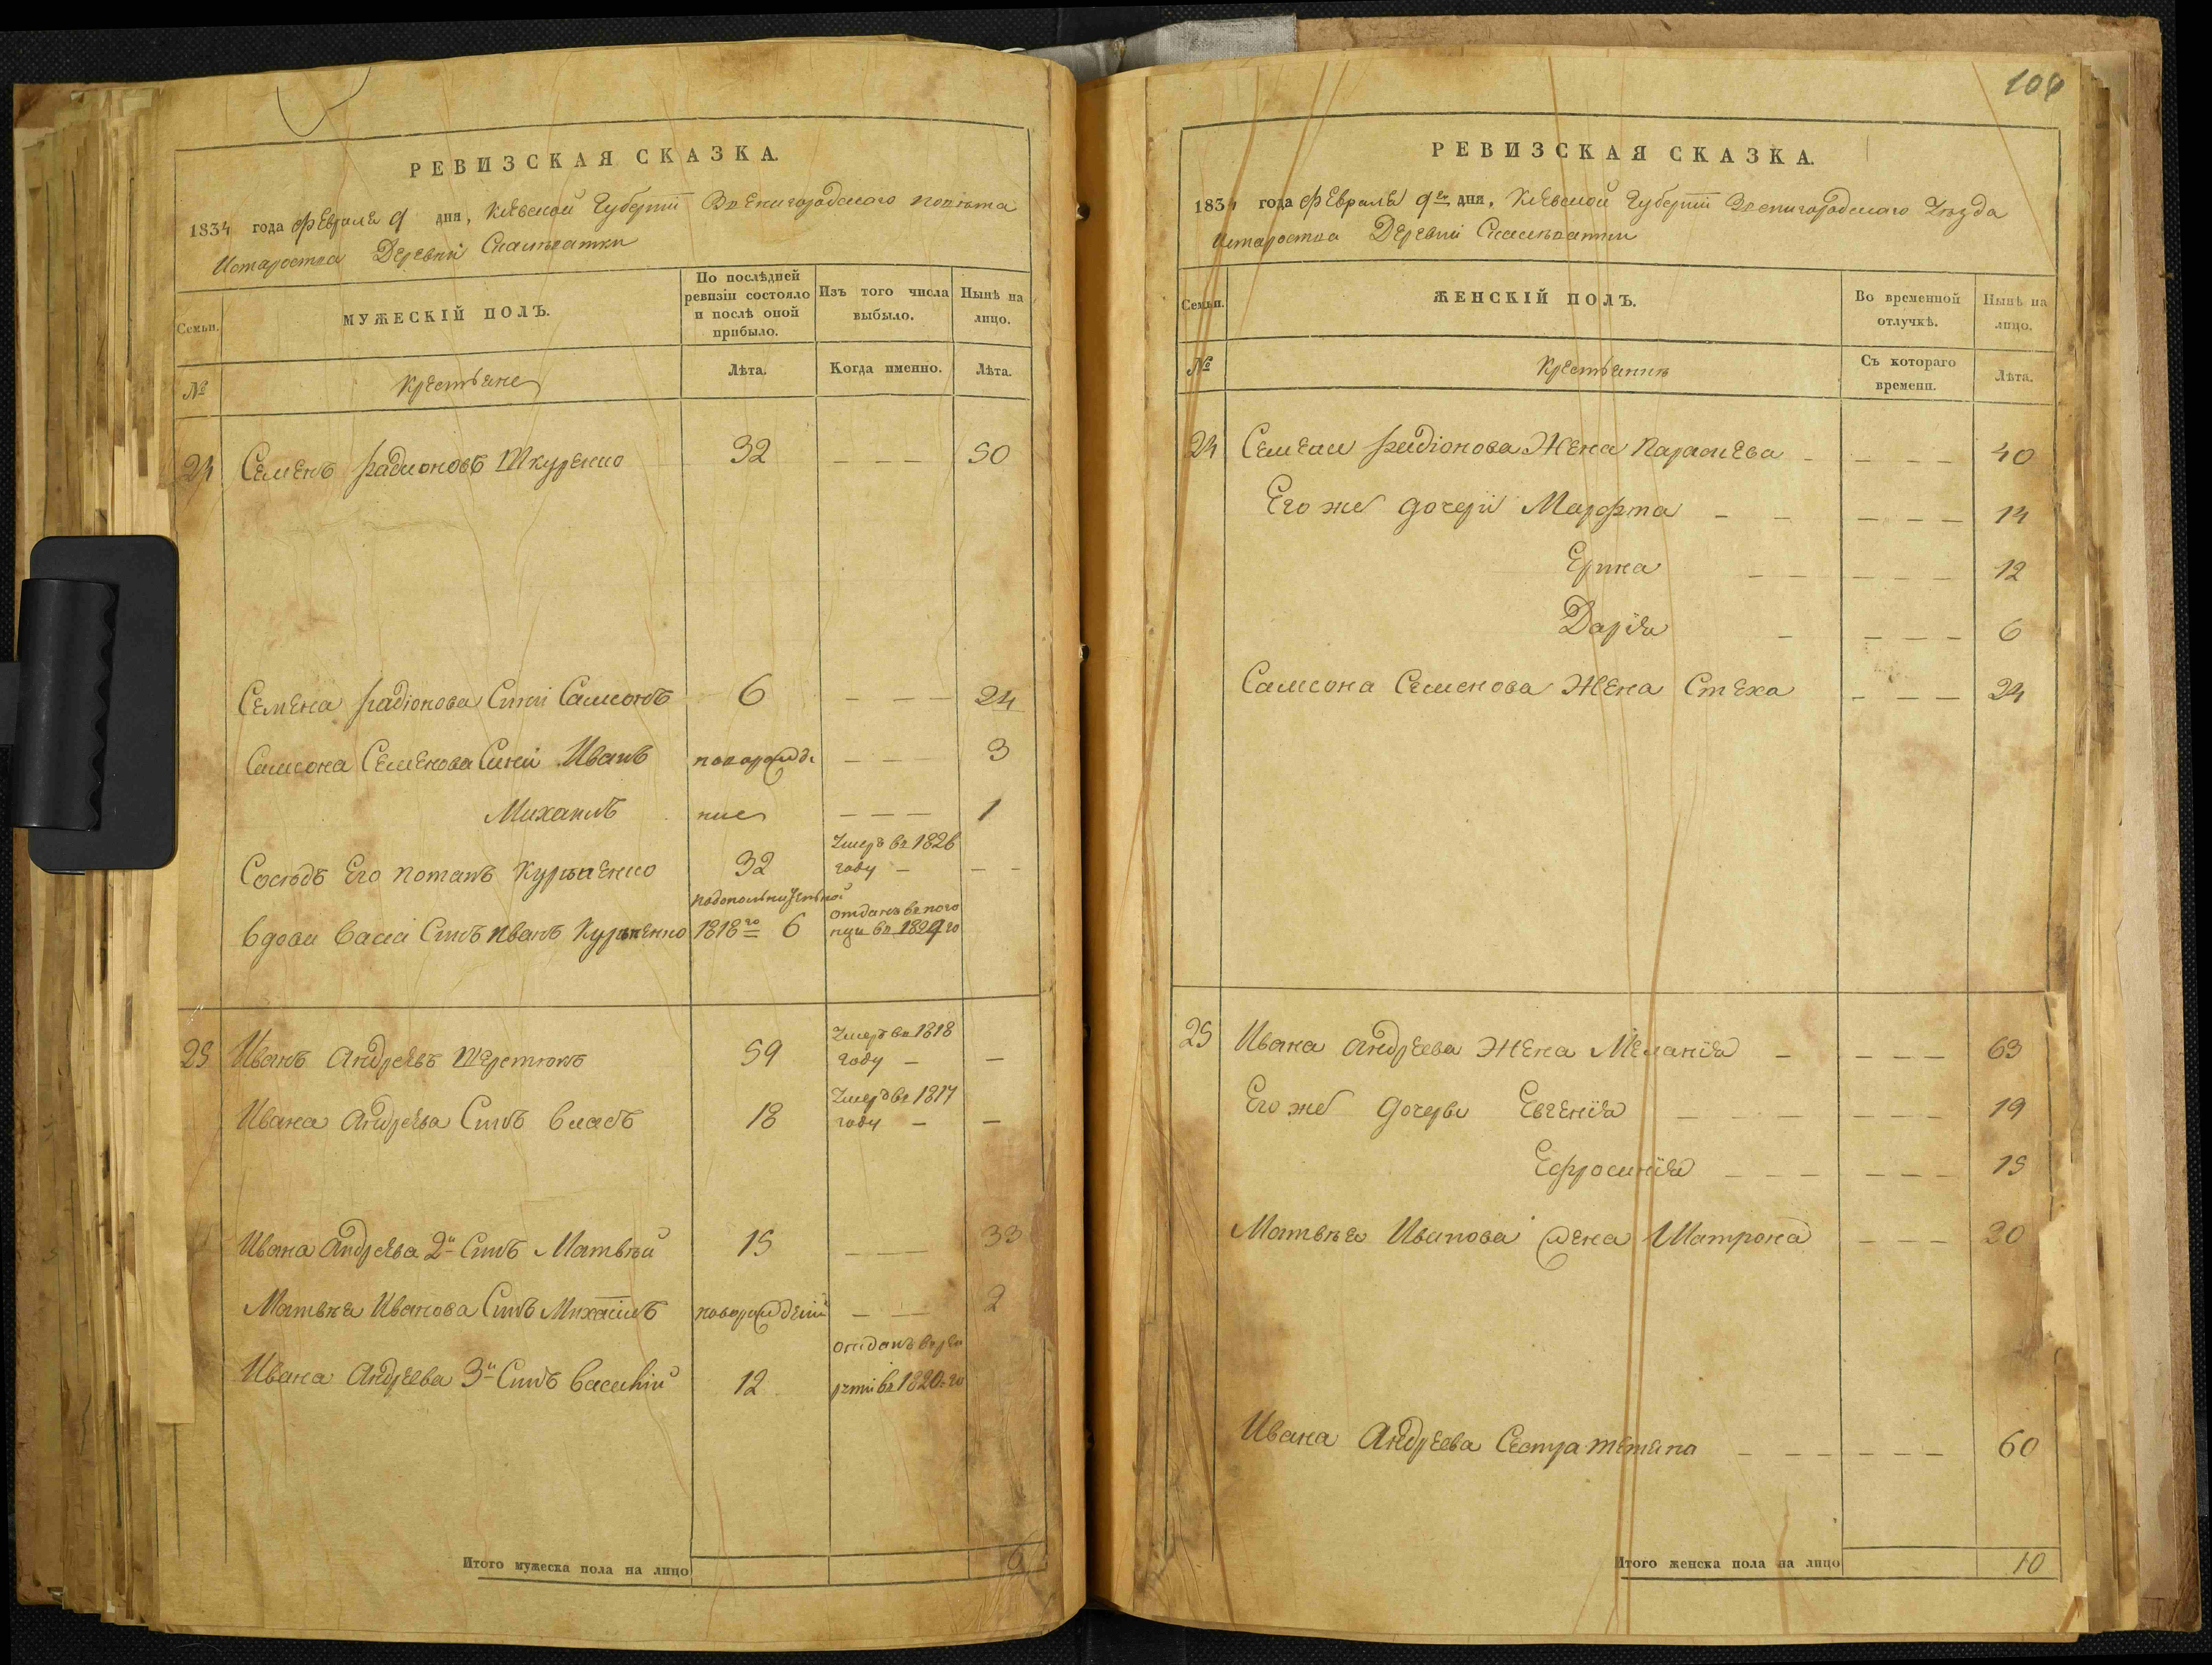 РЕВИЗСКАЯ СКАЗКА.
1834 года Февраля 9 дня, Кіевской Губерніи Звенигородского повѣта
Истаростка Деревни
Семьи.
МУЖЕСКІЙ ПОЛЪ.
По послѣдней ревизіи состояло и послѣ оной прибыло.
Изъ того числа выбыло.
Нынѣ на лицо.
№
Крестьяне
Лѣта.
Когда именно.
Лѣта.
24 Семенъ Радионовъ Шкуренко 32 — — — 50
Семена Радіонова Сини Самсонъ 6 — — — 24
Самсона Семенова Сини Иванъ новорожде — — — 3
Михаилъ ние — — — 1
Сосѣдъ Его Потапъ 32 Умеръ въ 1826 году — — —
Вдови Синъ Иванъ 1818го 6 отданъ въ
25 Иванъ Андреевъ Шеретюкъ 59 Умеръ въ 1818 году — —
Ивана Андреева Синъ Власъ 18 Умеръ въ 1817 году — —
Ивана Андреева 2й Синъ Матвѣй 15 — — — 33
Матвѣя Иванова Синъ Михаилъ новорожденій — — 2
Ивана Андреева 3й Синъ Василій 12 отданъ въ ре крти въ 1820го
Итого мужеска пола на лицо 6
106
РЕВИЗСКАЯ СКАЗКА.
1834 года Февраля 9го дня, Кіевской Губерніи Звенигородского Уѣзда
Истаростка Деревни
Семьи.
ЖЕНСКІЙ ПОЛЪ.
Во временной отлучкѣ.
Нынѣ на лицо.
№
Крестьянки
Съ котораго времени.
Лѣта.
24 Семена Радіонова Жена Параскева — — — — 40
Его же дочери Марфта — — — — — 14
Ерина — — — — — 12
Дарія — — — — 6
Самсона Семенова Жена Стеха — — — 24
25 Ивана Андреева Жена Меланія — — — — 63
Его же Дочери Евгенія — — — — — — 19
Ефросинія — — — — — — 15
Матвѣя Иванова Жена Матрона — — — 20
Ивана Андреева Сестра — — — — — — 60
Итого женска пола на лицо 10